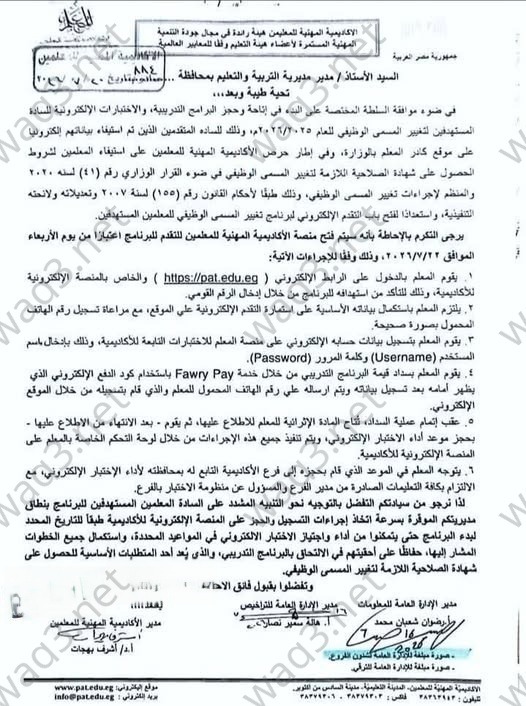 الاكاديمية المهنية للمعلمين هيئة رائدة في مجال جودة التنمية
المهنية المستمرة لأعضاء هيئة التعليم وفقًا للمعايير العالمية
جمهورية مصر العربية
الأكاديمية المهنية للمعلمين
٨٨٤
السيد الأستاذ/ مدير مديرية التربية والتعليم بمحافظة
تحية طيبة وبعد،،،
في ضوء موافقة السلطة المختصة على البدء في إتاحة وحجز البرامج التدريبية، والاختبارات الإلكترونية للسادة
المستهدفين لتغيير المسمى الوظيفي للعام ٢٠٢٦/٢٠٢٥م، وذلك للساده المتقدمين الذين تم استيفاء بياناتهم إلكترونيا
على موقع كادر المعلم بالوزارة، وفي إطار حرص الأكاديمية المهنية للمعلمين على استيفاء المعلمين لشروط
الحصول على شهادة الصلاحية اللازمة لتغيير المسمى الوظيفي في ضوء القرار الوزاري رقم (٤١) لسنة ٢٠٢٠
والمنظم لإجراءات تغيير المسمى الوظيفي، وذلك طبقًا لأحكام القانون رقم (١٥٥) لسنة ٢٠٠٧ وتعديلاته ولائحته
التنفيذية، واستعدادًا لفتح باب التقدم الإلكتروني لبرنامج تغيير المسمى الوظيفي للمعلمين المستهدفين.
يرجى التكرم بالإحاطة بأنه سيتم فتح منصة الأكاديمية المهنية للمعلمين للتقدم للبرنامج اعتبارًا من يوم الأربعاء
الموافق ٢٠٢٦/٧/٢٢، وذلك وفقًا للإجراءات الآتية:
١. يقوم المعلم بالدخول على الرابط الإلكتروني ( https://pat.edu.eg ) والخاص بالمنصة الإلكترونية
للأكاديمية، وذلك للتأكد من استهدافه للبرنامج من خلال إدخال الرقم القومي.
٢. يلتزم المعلم باستكمال بياناته الأساسية على استمارة التقدم الإلكترونية علي الموقع، مع مراعاة تسجيل رقم الهاتف
المحمول بصورة صحيحة.
٣. يقوم المعلم بتسجيل بيانات حسابه الإلكتروني على منصة المعلم للاختبارات التابعة للأكاديمية، وذلك بإدخال اسم
المستخدم (Username) وكلمة المرور (Password).
٤. يقوم المعلم بسداد قيمة البرنامج التدريبي من خلال خدمة Fawry Pay باستخدام كود الدفع الإلكتروني الذي
يظهر أمامه بعد تسجيل بياناته ويتم ارساله علي رقم الهاتف المحمول للمعلم والذي قام بتسجيله من خلال الموقع
الإلكتروني.
٥. عقب إتمام عملية السداد، تُتاح المادة الإثرائية للمعلم للاطلاع عليها، ثم يقوم - بعد الانتهاء من الاطلاع عليها -
بحجز موعد أداء الاختبار الإلكتروني، ويتم تنفيذ جميع هذه الإجراءات من خلال لوحة التحكم الخاصة بالمعلم على
المنصة الإلكترونية للأكاديمية.
٦. يتوجه المعلم في الموعد الذي قام بحجزه إلى فرع الأكاديمية التابع له بمحافظته لأداء الاختبار الإلكتروني، مع
الالتزام بكافة التعليمات الصادرة من مدير الفرع والمسؤول عن منظومة الاختبار بالفرع.
لذا نرجو من سيادتكم التفضل بالتوجيه نحو التنبيه المشدد على السادة المعلمين المستهدفين للبرنامج بنطاق
مديريتكم الموقرة بسرعة اتخاذ إجراءات التسجيل والحجز على المنصة الإلكترونية للأكاديمية طبقاً للتاريخ المحدد
لبدء البرنامج حتى يتمكنوا من أداء واجتياز الاختبار الالكتروني في المواعيد المحددة، واستكمال جميع الخطوات
المشار إليها، حفاظًا على أحقيتهم في الالتحاق بالبرنامج التدريبي، والذي يُعد أحد المتطلبات الأساسية للحصول على
شهادة الصلاحية اللازمة لتغيير المسمى الوظيفي.
وتفضلوا بقبول فائق الاحترام
مدير الإدارة العامة للمعلومات
مدير الإدارة العامة للتراخيص
مدير الاكاديمية المهنية للمعلمين
رضوان شعبان محمد
أ. هالة سمير نصار
أ.د/ أشرف بهجات
- صورة مبلغة للإدارة العامة لشئون الفروع.
- صورة مبلغة للإدارة العامة للترقي.
الاكاديمية المهنية للمعلمين- المدينة التعليمية- مدينة السادس من أكتوبر.
موقع إليكتروني: www.pat.edu.eg
info@pat.edu.eg
waq3.net